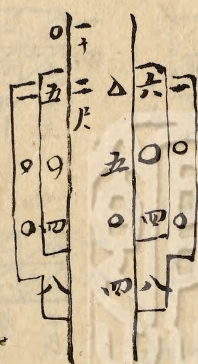 一〇〇
六〇四八
△五〇四
一十二尺
〇五〇四八
一〇〇